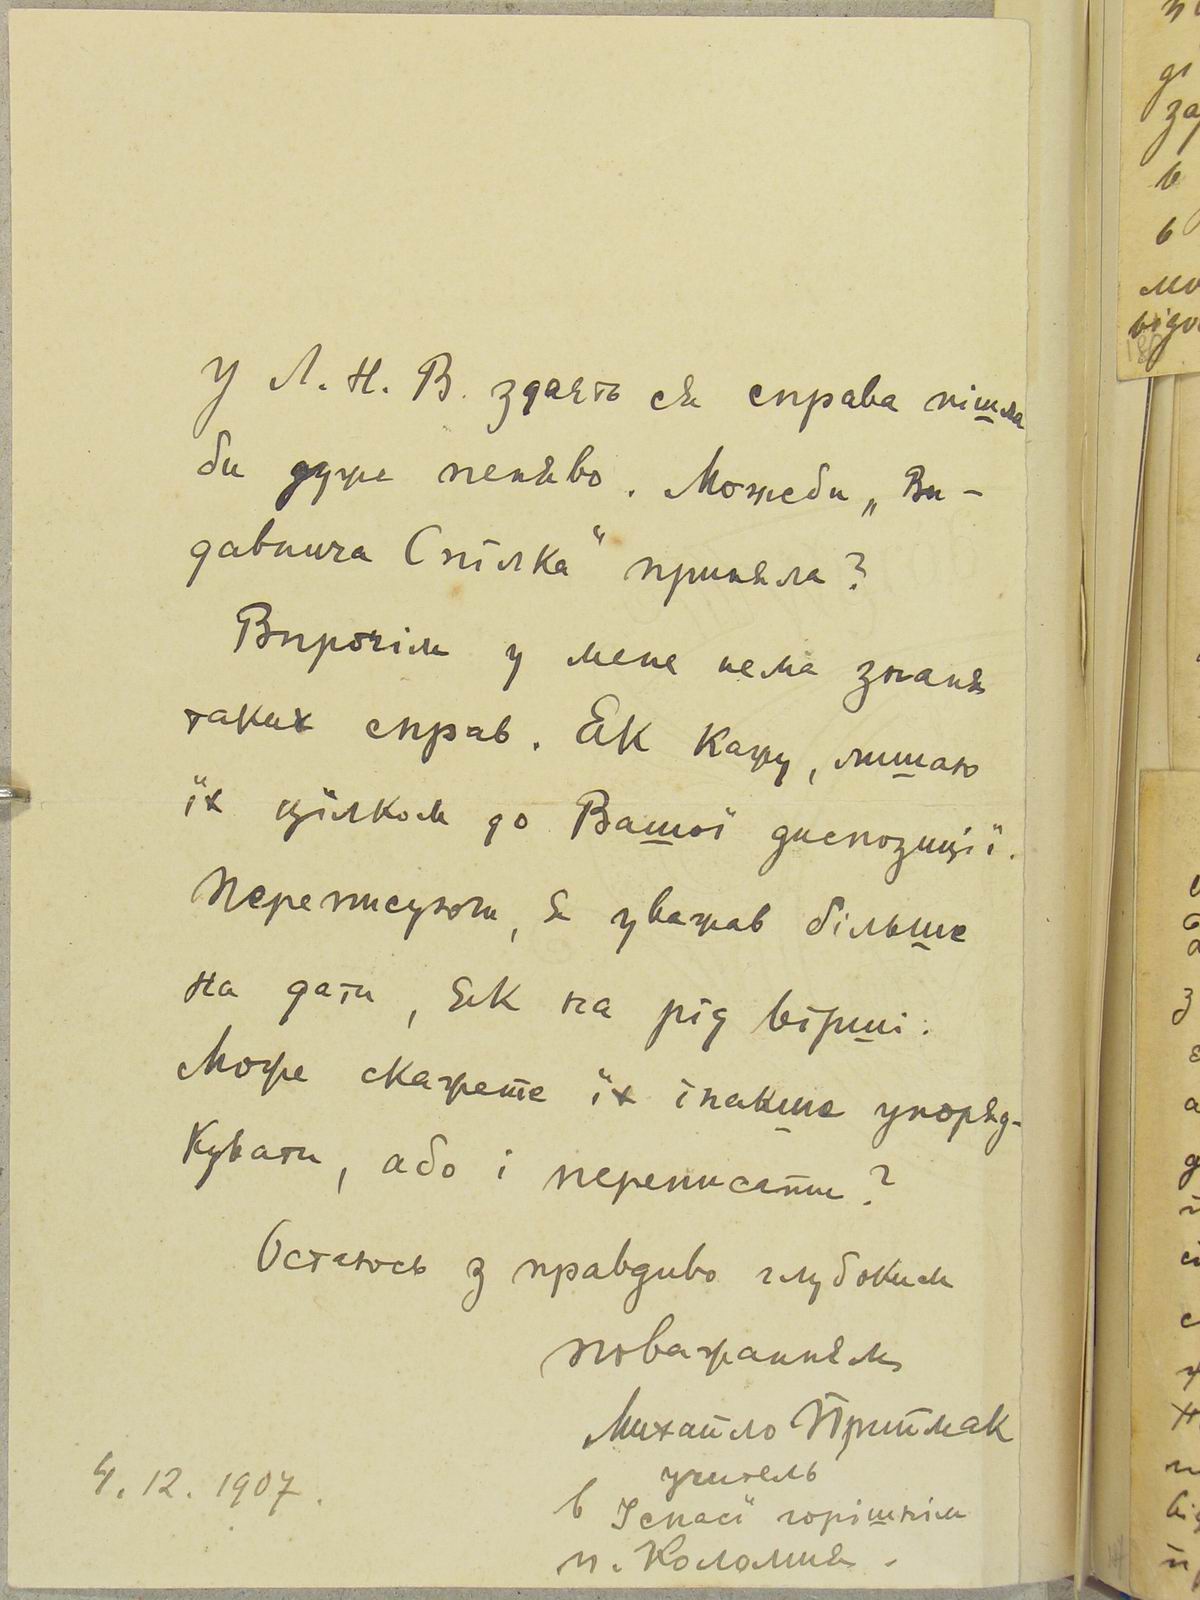 У Л. Н. В. здаєть ся справа пішла
би дуже пеняво. Можеби „Ви-
давнича Спілка" приняла?
Впрочім у мене нема знаня
таких справ. Як кажу, лишаю
їх цїлком до Вашої диспозициї.
Переписуючи, я уважав більше
на дати, як на рід вірші.
Може скажете їх інакше упоряд-
кувати, або і переписати?
Остаюсь з правдиво глубоким
поважаннєм
Михайло Приймак
учитель
в Іспасї горішнім
п. Коломия.
4. 12. 1907.